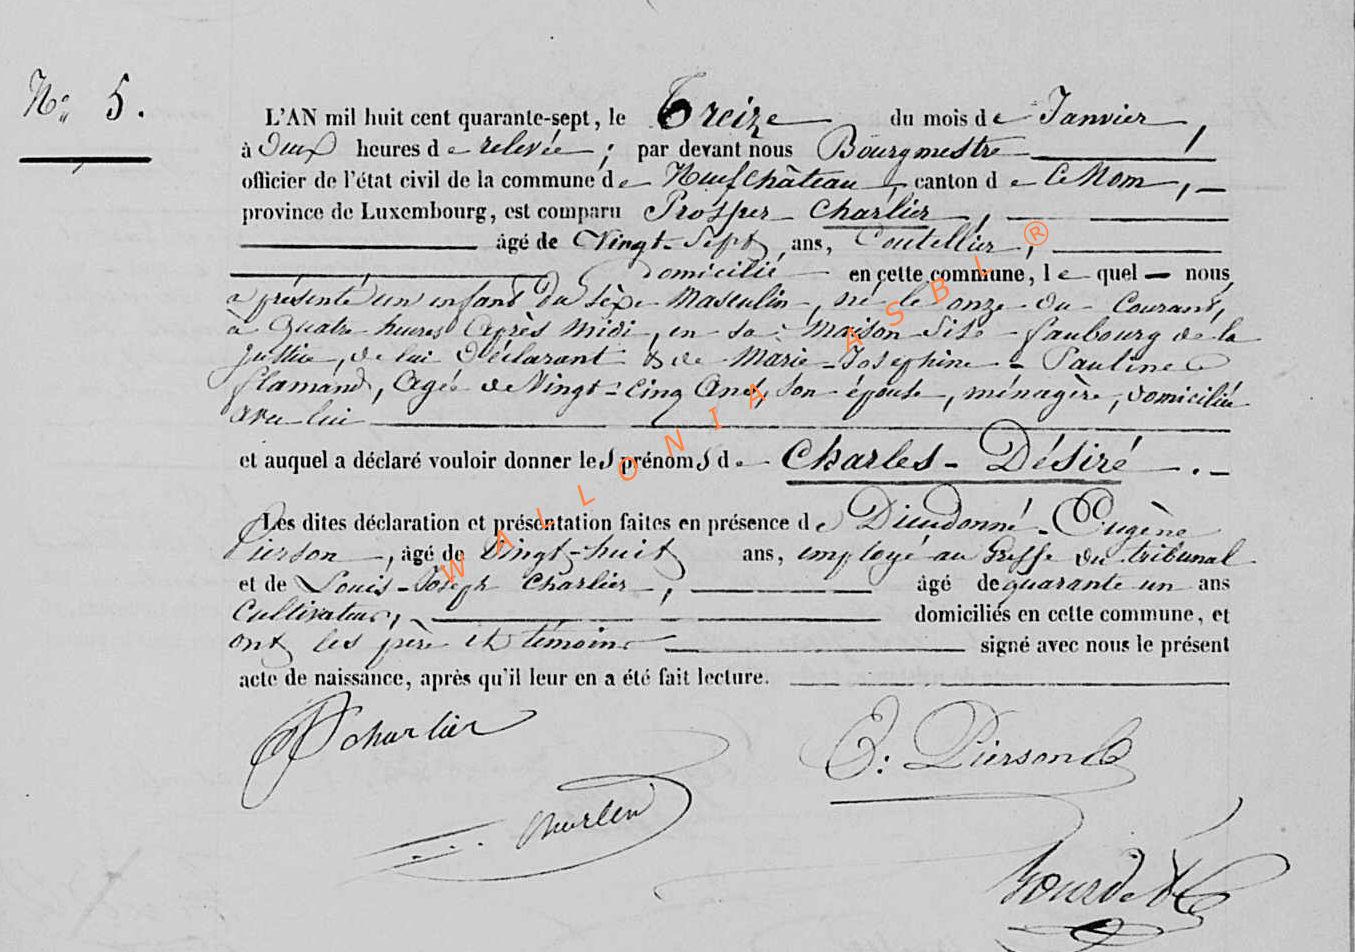 N° 5.
L'AN mil huit cent quarante-sept, le Treize du mois de Janvier,
à Deux heures de relevée; par devant nous Bourgmestre
officier de l'état civil de la commune de Neufchâteau, canton de ce Nom,
province de Luxembourg, est comparu Prosper Charlier,
âgé de Vingt-Sept ans, Coutellier,
domicilié en cette commune, lequel nous
a présenté un enfant du sèxe Masculin, né le onze du Courant,
à Quatre heures Après Midi, en sa Maison Sise faubourg de la
Justice, de lui Déclarant & de Marie-Joséphine-Pauline
flamand, Agée de Vingt-Cinq Ans, son épouse, ménagère, domiciliée
avec lui
et auquel a déclaré vouloir donner les prénoms de Charles-Désiré.
Les dites déclaration et présentation faites en présence de Dieudonné-Eugène
Pierson, âgé de Vingt-huit ans, employé au Greffe du tribunal
et de Louis-Joseph Charlier, âgé de quarante un ans
Cultivateur, domiciliés en cette commune, et
ont les père et témoins signé avec nous le présent
acte de naissance, après qu'il leur en a été fait lecture.
P Charlier
E: Pierson
WALLONIA ASBL ®